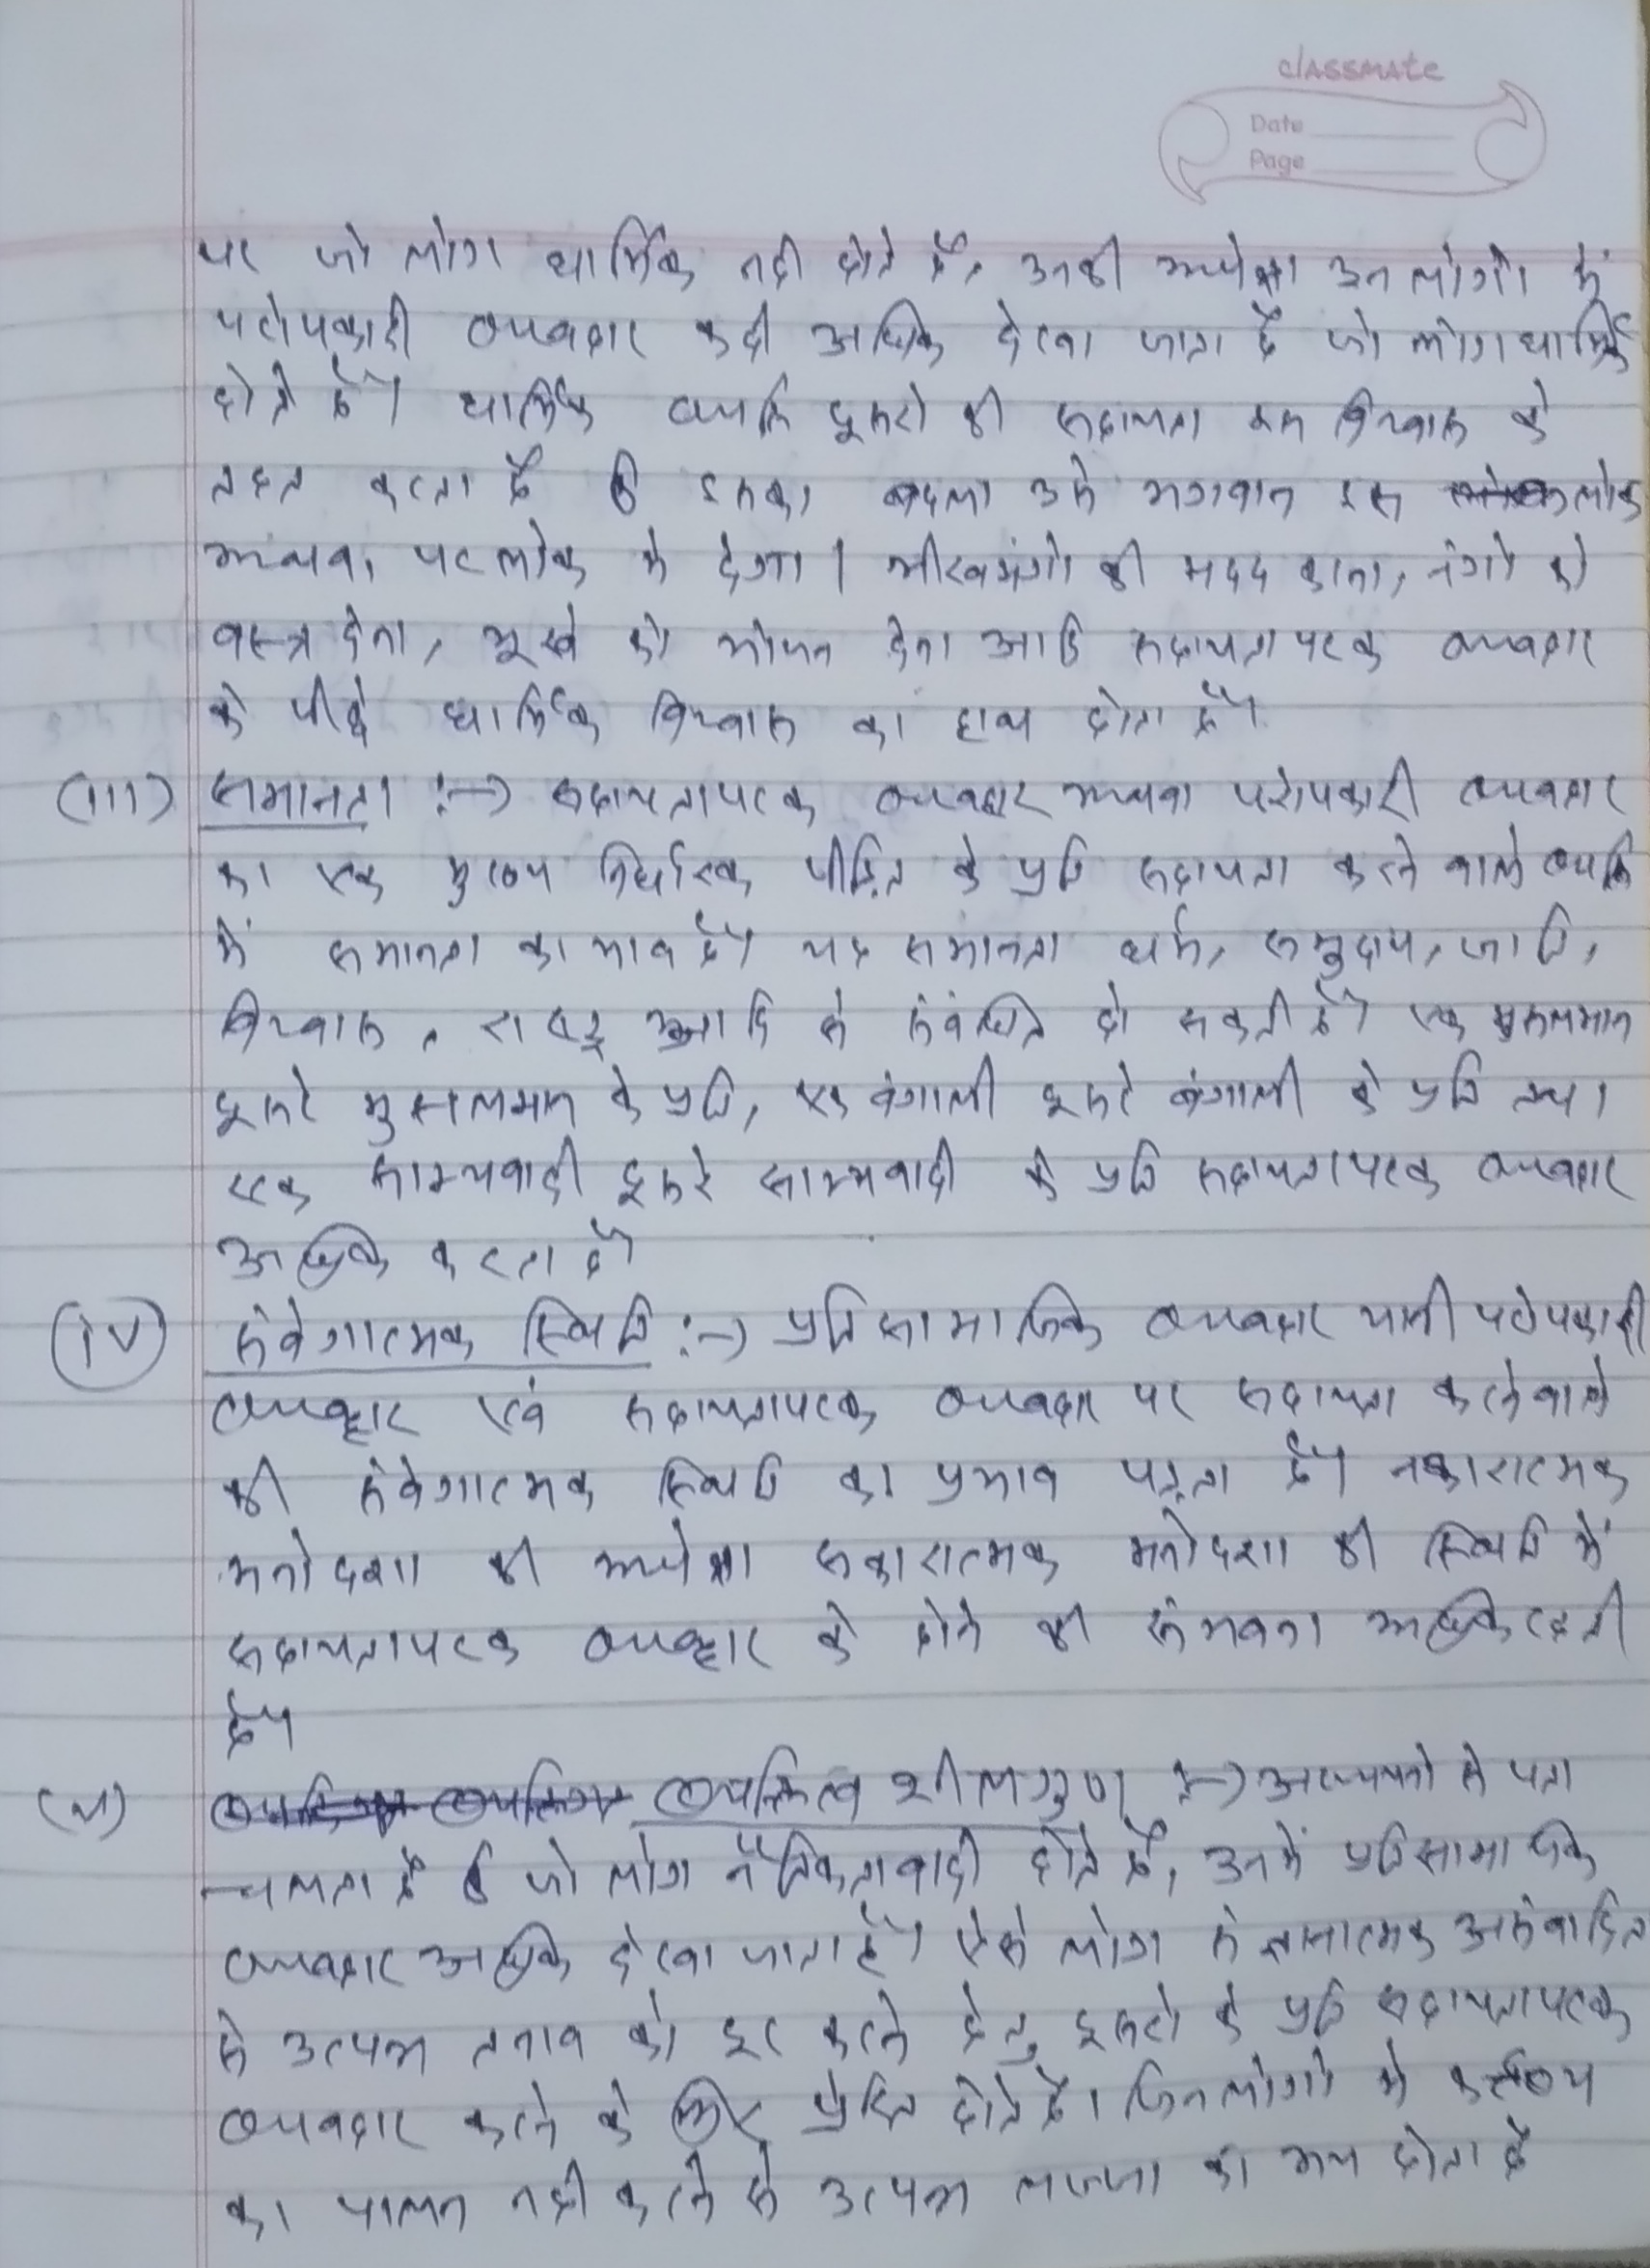 classmate
Date
Page
पर जो लोग धार्मिक नही होते है, उनकी अपेक्षा उन लोगो में
परोपकारी व्यवहार कही अधिक देखा जाता है जो लोग धार्मिक
होते है। धार्मिक व्यक्ति दूसरो की सहायता इस विश्वास के
तहत करता है कि इसका बदला उसे भगवान इस लोक
अथवा परलोक मे देगा। भीखमंगो की मदद करना, नंगो को
वस्त्र देना, भूखे को भोजन देना आदि सहायतापरक व्यवहार
के पीछे धार्मिक विश्वास का हाथ होता है।
(iii) समानता :→ सहायतापरक व्यवहार अथवा परोपकारी व्यवहार
का एक मुख्य निर्धारक पीड़ित के प्रति सहायता करने वाले व्यक्ति
में समानता का भाव है। यह समानता धर्म, समुदाय, जाति,
विश्वास, राष्ट्र आदि से संबंधित हो सकती है। एक मुसलमान
दूसरे मुसलमान के प्रति, एक बंगाली दूसरे बंगाली के प्रति तथा
एक साम्यवादी दूसरे साम्यवादी के प्रति सहायतापरक व्यवहार
अधिक करता है।
(iv) संवेगात्मक स्थिति :→ प्रतिसामाजिक व्यवहार यानी परोपकारी
व्यवहार एवं सहायतापरक व्यवहार पर सहायता करनेवाले
की संवेगात्मक स्थिति का प्रभाव पड़ता है। नकारात्मक
मनोदशा की अपेक्षा सकारात्मक मनोदशा की स्थिति में
सहायतापरक व्यवहार के होने की संभवना अधिक रहती
है।
(v) व्यक्तित्व शीलगुण :→ अध्ययनो से पता
चलता है कि जो लोग नैतिकतावादी होते है, उनमें प्रतिसामाजिक
व्यवहार अधिक देखा जाता है। ऐसे लोग संज्ञानात्मक
से उत्पन्न तनाव को दूर करने हेतु दूसरो के प्रति सहायतापरक
व्यवहार करने के लिए प्रेरित होते है। जिन लोगो मे कर्तव्य
का पालन नही करने से उत्पन्न लज्जा का भय होता है